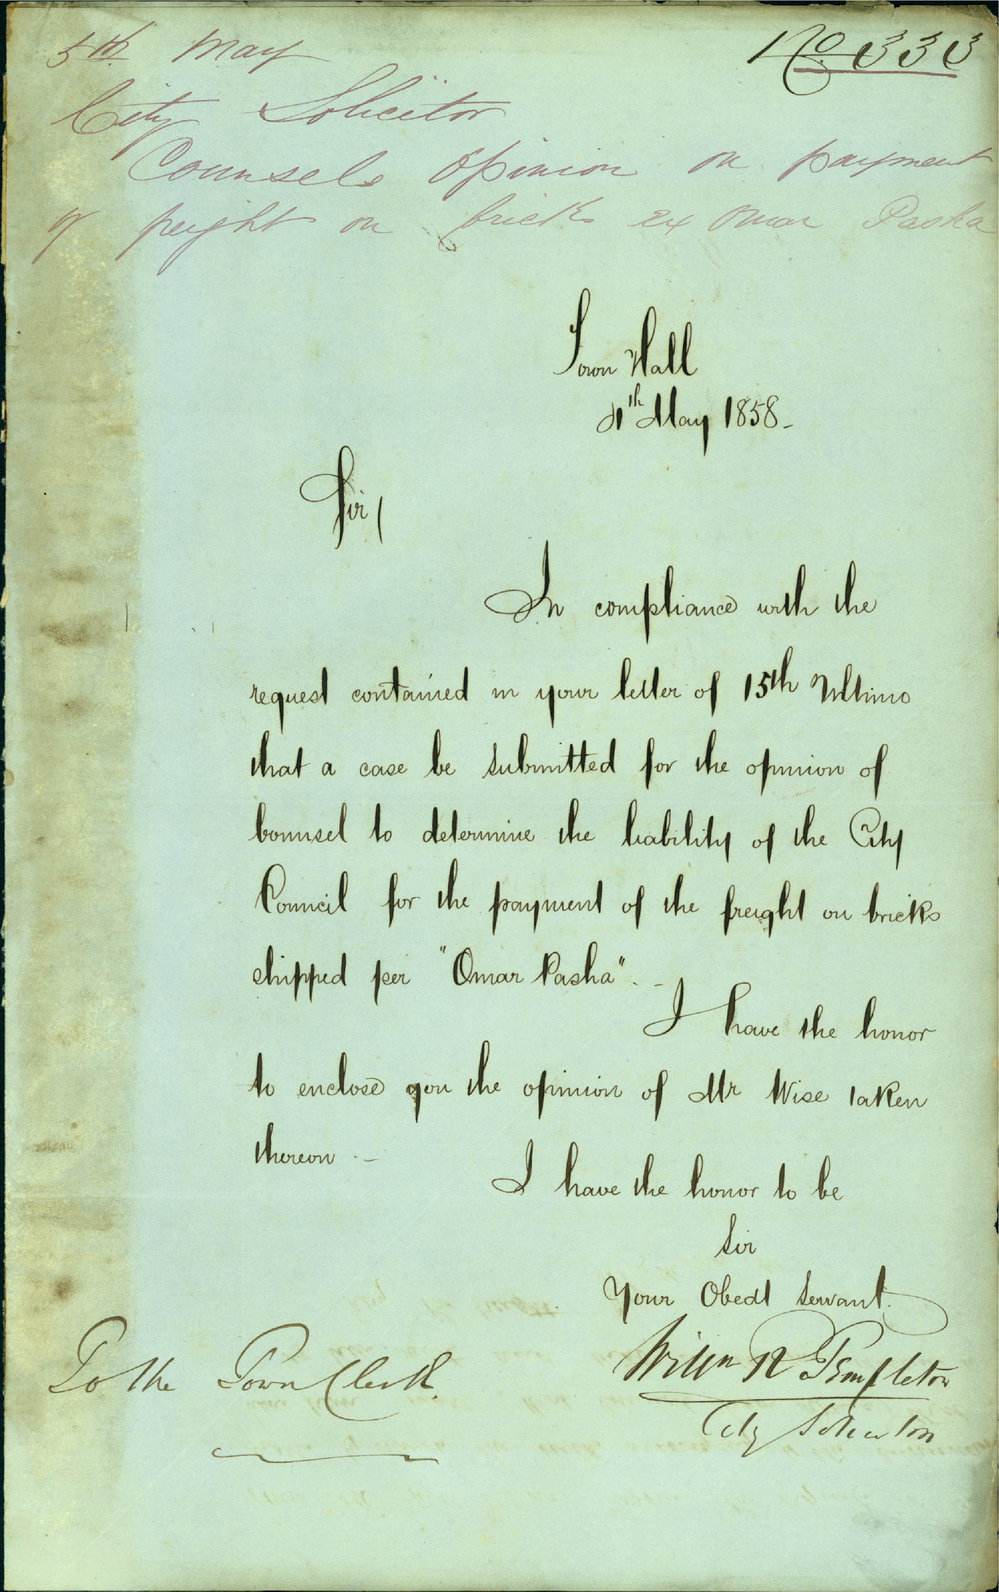 5th May
No. 333
City Solicitor
Counsels opinion on payment
of freight on bricks ex Omar Pasha
Town Hall
4th May 1858 -
Sir /
In compliance with the
request contained in your letter of 15th Ultimo
that a case be submitted for the opinion of
Counsel to determine the liability of the City
Council for the payment of the freight on bricks
shipped per "Omar Pasha". -
I have the honor
to enclose you the opinion of Mr Wise taken
thereon . -
I have the honor to be
Sir
Your Obedt Servant.
Willm R Templeton
City Solicitor
To the Town Clerk.